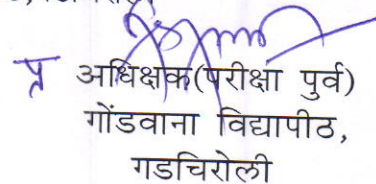 प्र अधिक्षक(परीक्षा पुर्व)
गोंडवाना विद्यापीठ,
गडचिरोली